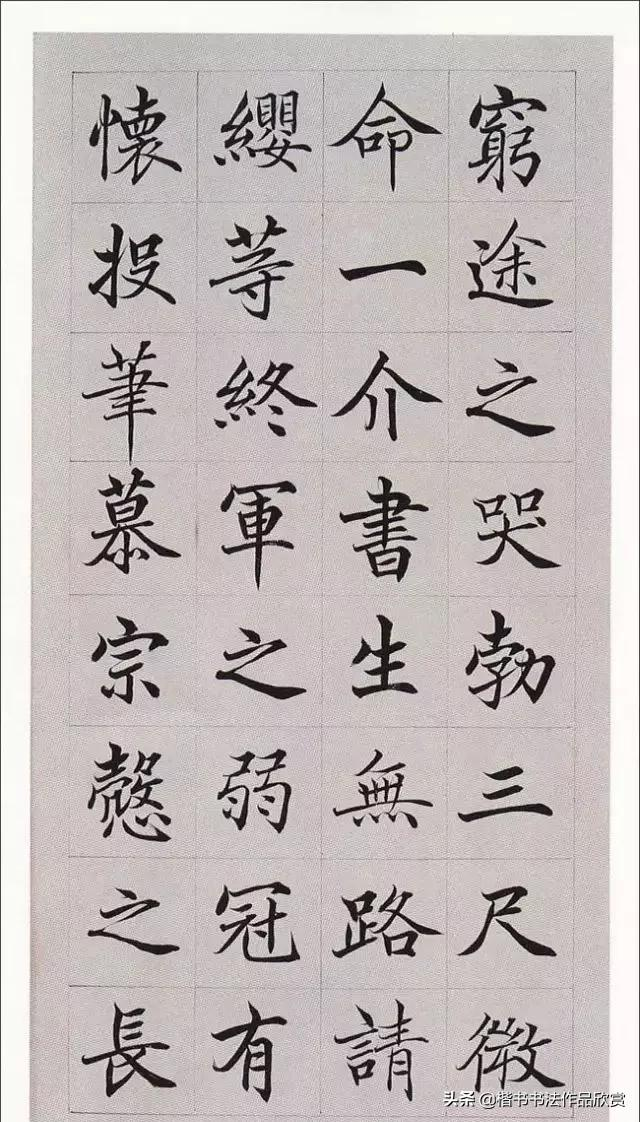 窮途之哭勃三尺微
命一介書生無路請
纓等終軍之弱冠有
懷投筆慕宗慤之長
头条 @楷书书法作品欣赏